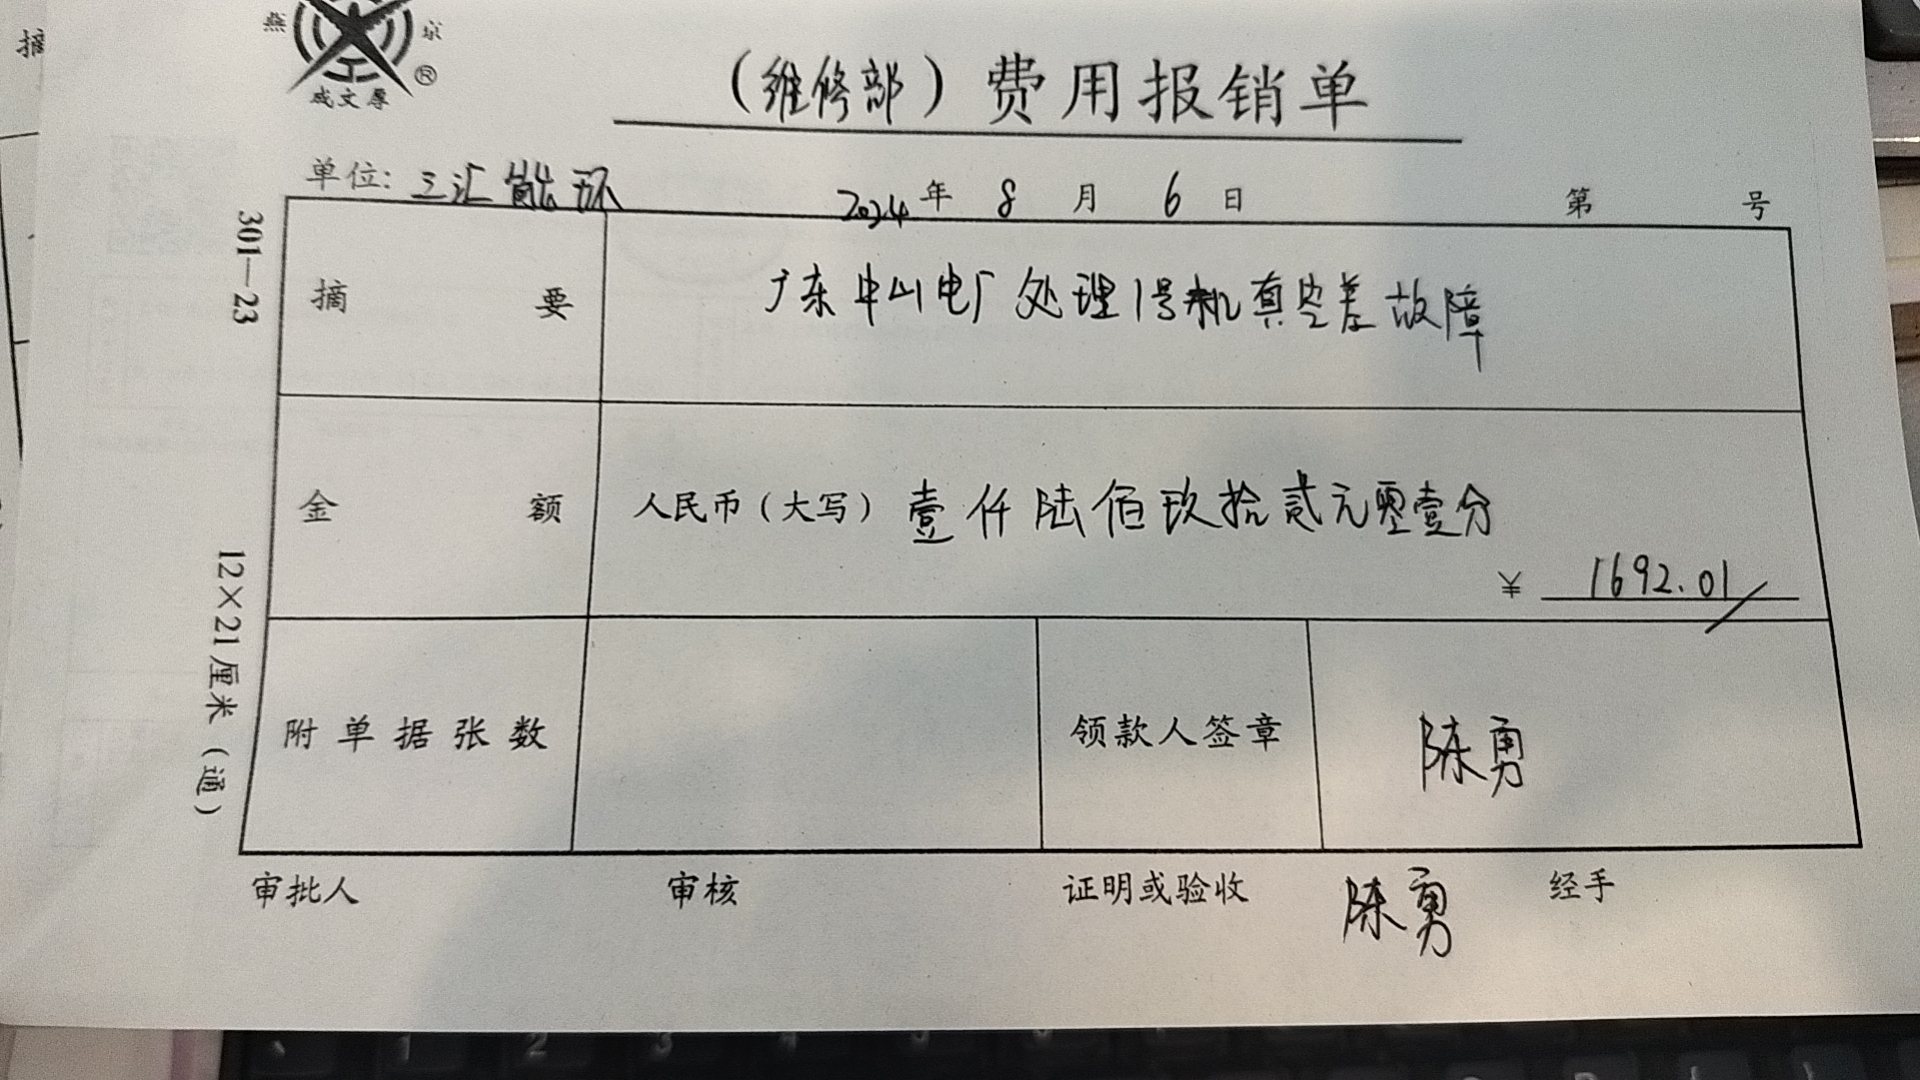 摘
燕 京
®
成文厚
（维修部）费用报销单
单位: 三汇能环 2024年 8 月 6 日 第 号
301—23
12×21厘米（通）
摘 要 广东中山电厂处理1号机真空差故障
金 额 人民币（大写）壹仟陆佰玖拾贰元零壹分
¥ 1692.01
附单据张数 领款人签章 陈勇
审批人 审核 证明或验收 陈勇 经手